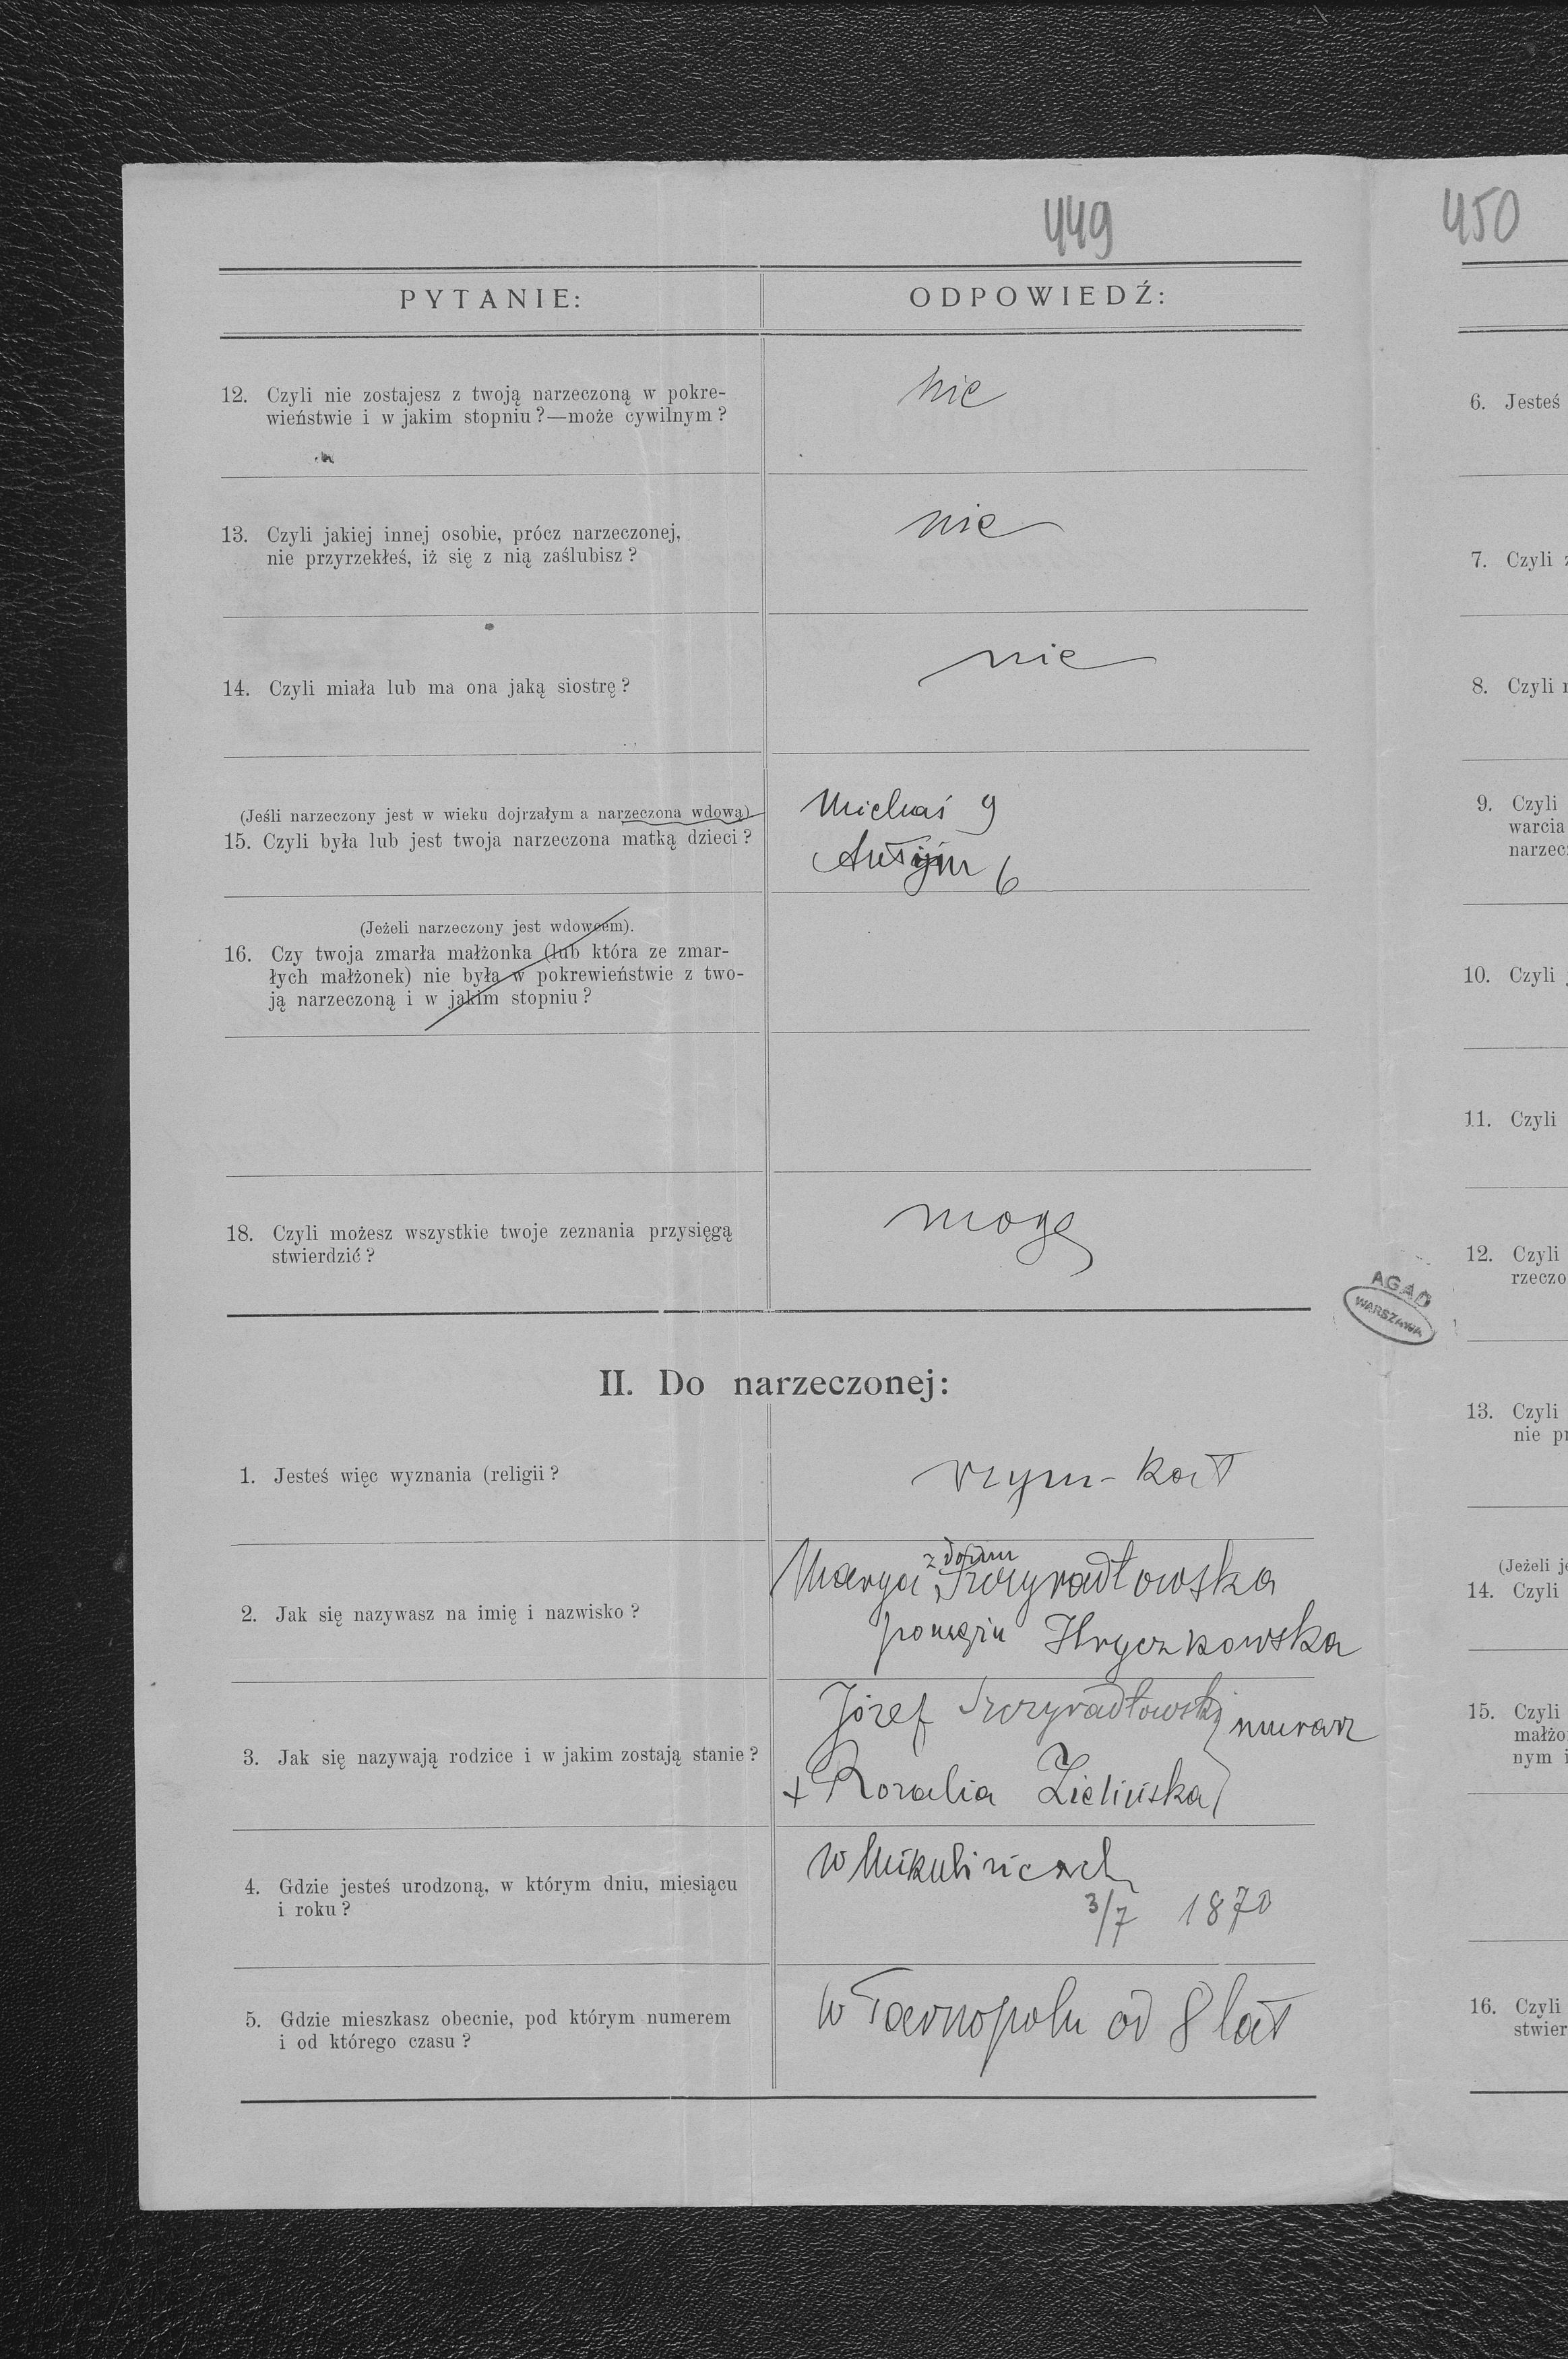 449
450
PYTANIE:
ODPOWIEDŹ:
12. Czyli nie zostajesz z twoją narzeczoną w pokre-
wieństwie i w jakim stopniu?—może cywilnym?
nie
13. Czyli jakiej innej osobie, prócz narzeczonej,
nie przyrzekłeś, iż się z nią zaślubisz?
nie
14. Czyli miała lub ma ona jaką siostrę?
nie
(Jeśli narzeczony jest w wieku dojrzałym a narzeczona wdową)
15. Czyli była lub jest twoja narzeczona matką dzieci?
Michaś 9
6
(Jeżeli narzeczony jest wdowcem).
16. Czy twoja zmarła małżonka (lub która ze zmar-
łych małżonek) nie była w pokrewieństwie z two-
ją narzeczoną i w jakim stopniu?
18. Czyli możesz wszystkie twoje zeznania przysięgą
stwierdzić?
mogę
AGAD
WARSZAWA
II. Do narzeczonej:
1. Jesteś więc wyznania (religii?
rzym-kat
2. Jak się nazywasz na imię i nazwisko?
z domu
Marya Szczyradłowska
Hryczkowska
3. Jak się nazywają rodzice i w jakim zostają stanie?
Józef Szczyradłowski murarz
+ Rozalia Zielińska
4. Gdzie jesteś urodzoną, w którym dniu, miesiącu
i roku?
W Mikulińcach
3/7 1870
5. Gdzie mieszkasz obecnie, pod którym numerem
i od którego czasu?
w Tarnopolu od 8 lat
6. Jesteś
7. Czyli
8. Czyli
9. Czyli
warcia
narzec
10. Czyli
11. Czyli
12. Czyli
rzeczo
13. Czyli
nie
(Jeżeli
14. Czyli
15. Czyli
małżo
nym
16. Czyli
stwier